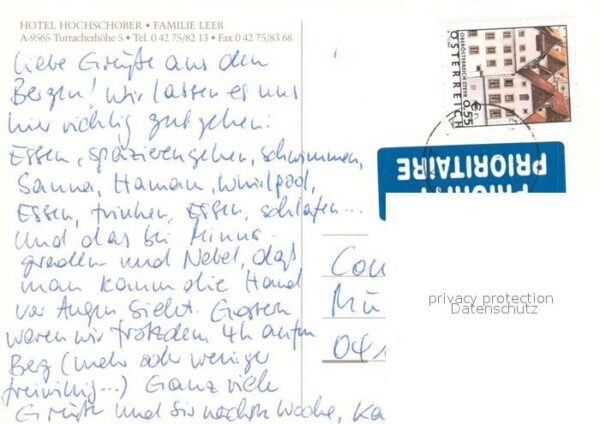 HOTEL HOCHSCHOBER • FAMILIE LEEB
A-9565 Turracherhöhe 5 • Tel. 0 42 75/82 13 • Fax 0 42 75/83 68
liebe Grüße aus den
Bergen! Wir lassen es uns
hier richtig gut gehen:
Essen, spazierengehen, schwimmen,
Sauna, Hamam, Whirlpool,
Essen, trinken, Essen, schlafen...
Und das bei Minus-
graden und Nebel, daß
man kaum die Hand
vor Augen sieht. Gestern
waren wir trotzdem 4h auf'm
Berg (mehr oder weniger
freiwillig...) Ganz viele
Grüße und bis nächste Woche, Ka
OBERÖSTERREICH STEYR
€ 0,55
ÖSTERREICH
PRIORITY
PRIORITAIRE
Con
Mü
041
privacy protection
Datenschutz